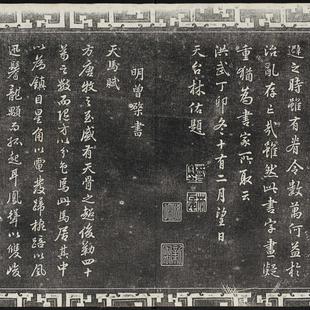 避之時雖有眷令數萬何益於
治亂存亡哉雖然此書字畫凝
重猶為書家所取云
洪武丁卯冬十有二月望日
天台林佑題
明曾棨書
天馬賦
方唐牧之至盛有天骨之超俊勒四十
萬之數而隨方以分色焉此馬居其中
以為鎮目星角以電發蹄椀踣以風
迅鬐龍顒而孤起耳鳳聳以雙峻